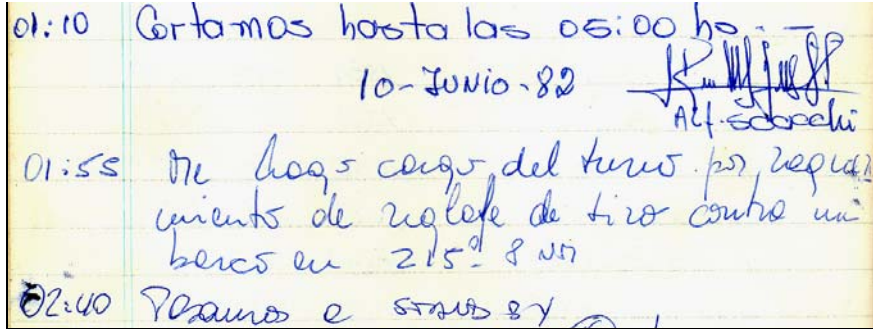 01:10 Cortamos hasta las 05:00 hs. -
10-JUNIO-82
Alf. Scocchi
01:55 Me hago cargo del turno por requeri
miento de reglaje de tiro contra un
barco en 215º 8 NM
02:40 Pasamos a STAND BY